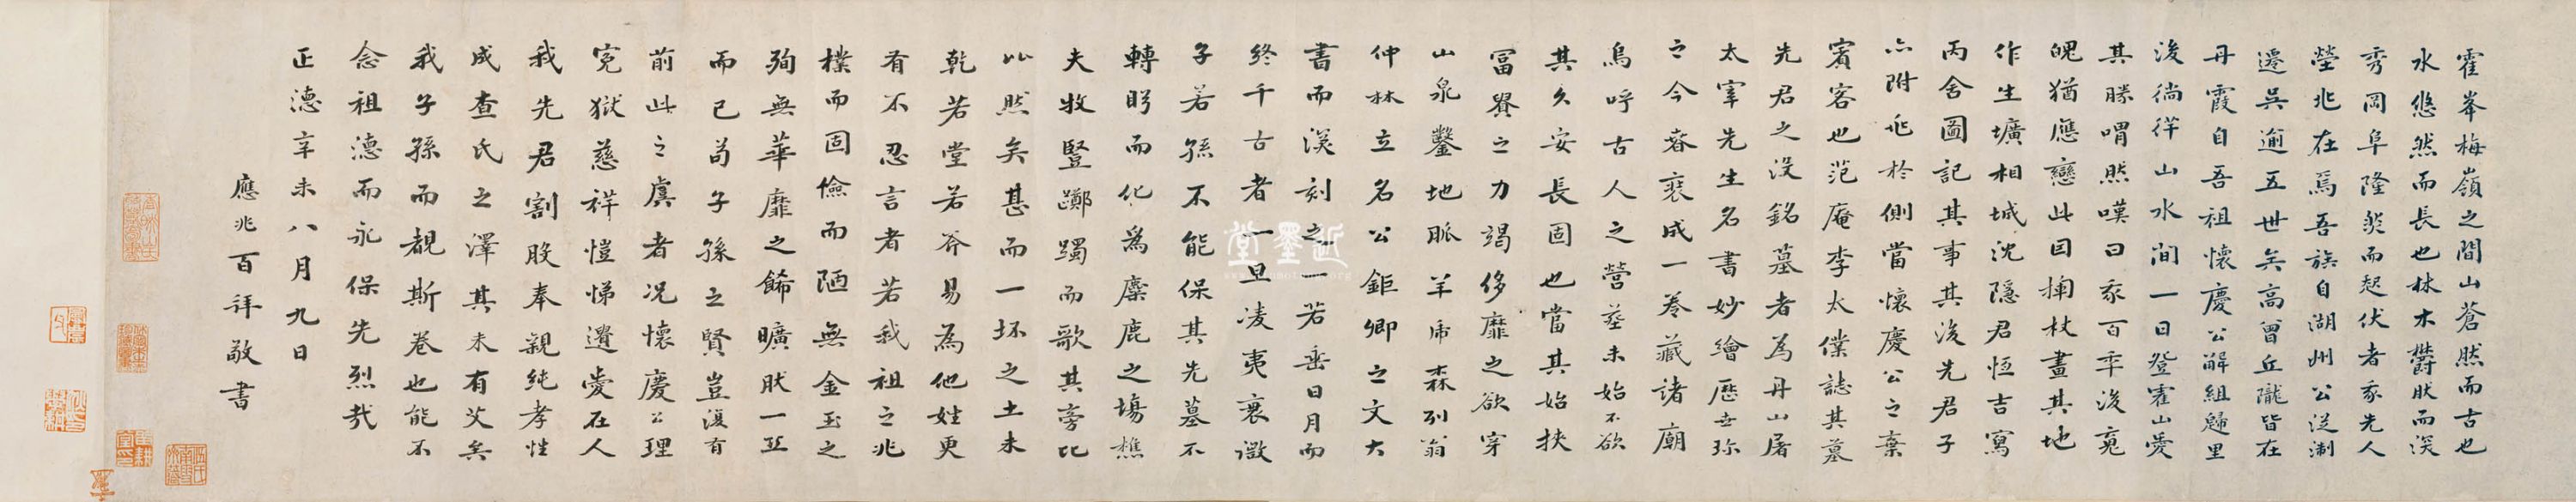 霍峯梅嶺之間山蒼然而古也
水悠然而長也林木欝然而深
秀岡阜隆然而起伏者我先人
塋兆在焉吾族自湖州公從淛
遷吳逾五世矣高曾丘隴皆在
丹霞自吾祖懷慶公解組歸里
後徜徉山水間一日登霍山愛
其勝喟然嘆曰我百年後竟
魄猶應戀此因掬杖畫其地
作生壙相城沈隱君恒吉寫
丙舍圖記其事其後先君子
亦附兆於側當懷慶公之棄
賓客也范庵李太僕誌其墓
先君之沒銘墓者為丹山屠
太宰先生名書妙繪歷世珍
之今春裒成一卷藏諸廟
烏呼古人之營葬未始不欲
其久安長固也當其始挾
冨貴之力竭侈靡之欲穿
山泉鑿地脈羊虎森列翁
仲林立名公鉅卿之文大
書而深刻之若垂日月而
終千古者一旦凌夷衰微
子若孫不能保其先墓不
轉眄而化為麋鹿之塲樵
夫牧豎躑躅而歌其旁比
比然矣甚而一抔之土未
乾若堂若斧易為他姓更
有不忍言者若我祖之兆
樸而固儉而陋無金玉之
殉無華靡之餙曠然一丘
而已苟子孫之賢豈復有
前此之虞者况懷慶公理
寃獄慈祥愷悌遺愛在人
我先君割股奉親純孝性
成查氏之澤其未有艾矣
我子孫而覩斯卷也能不
念祖德而永保先烈哉
正德辛未八月九日
應兆百拜敬書
近墨堂